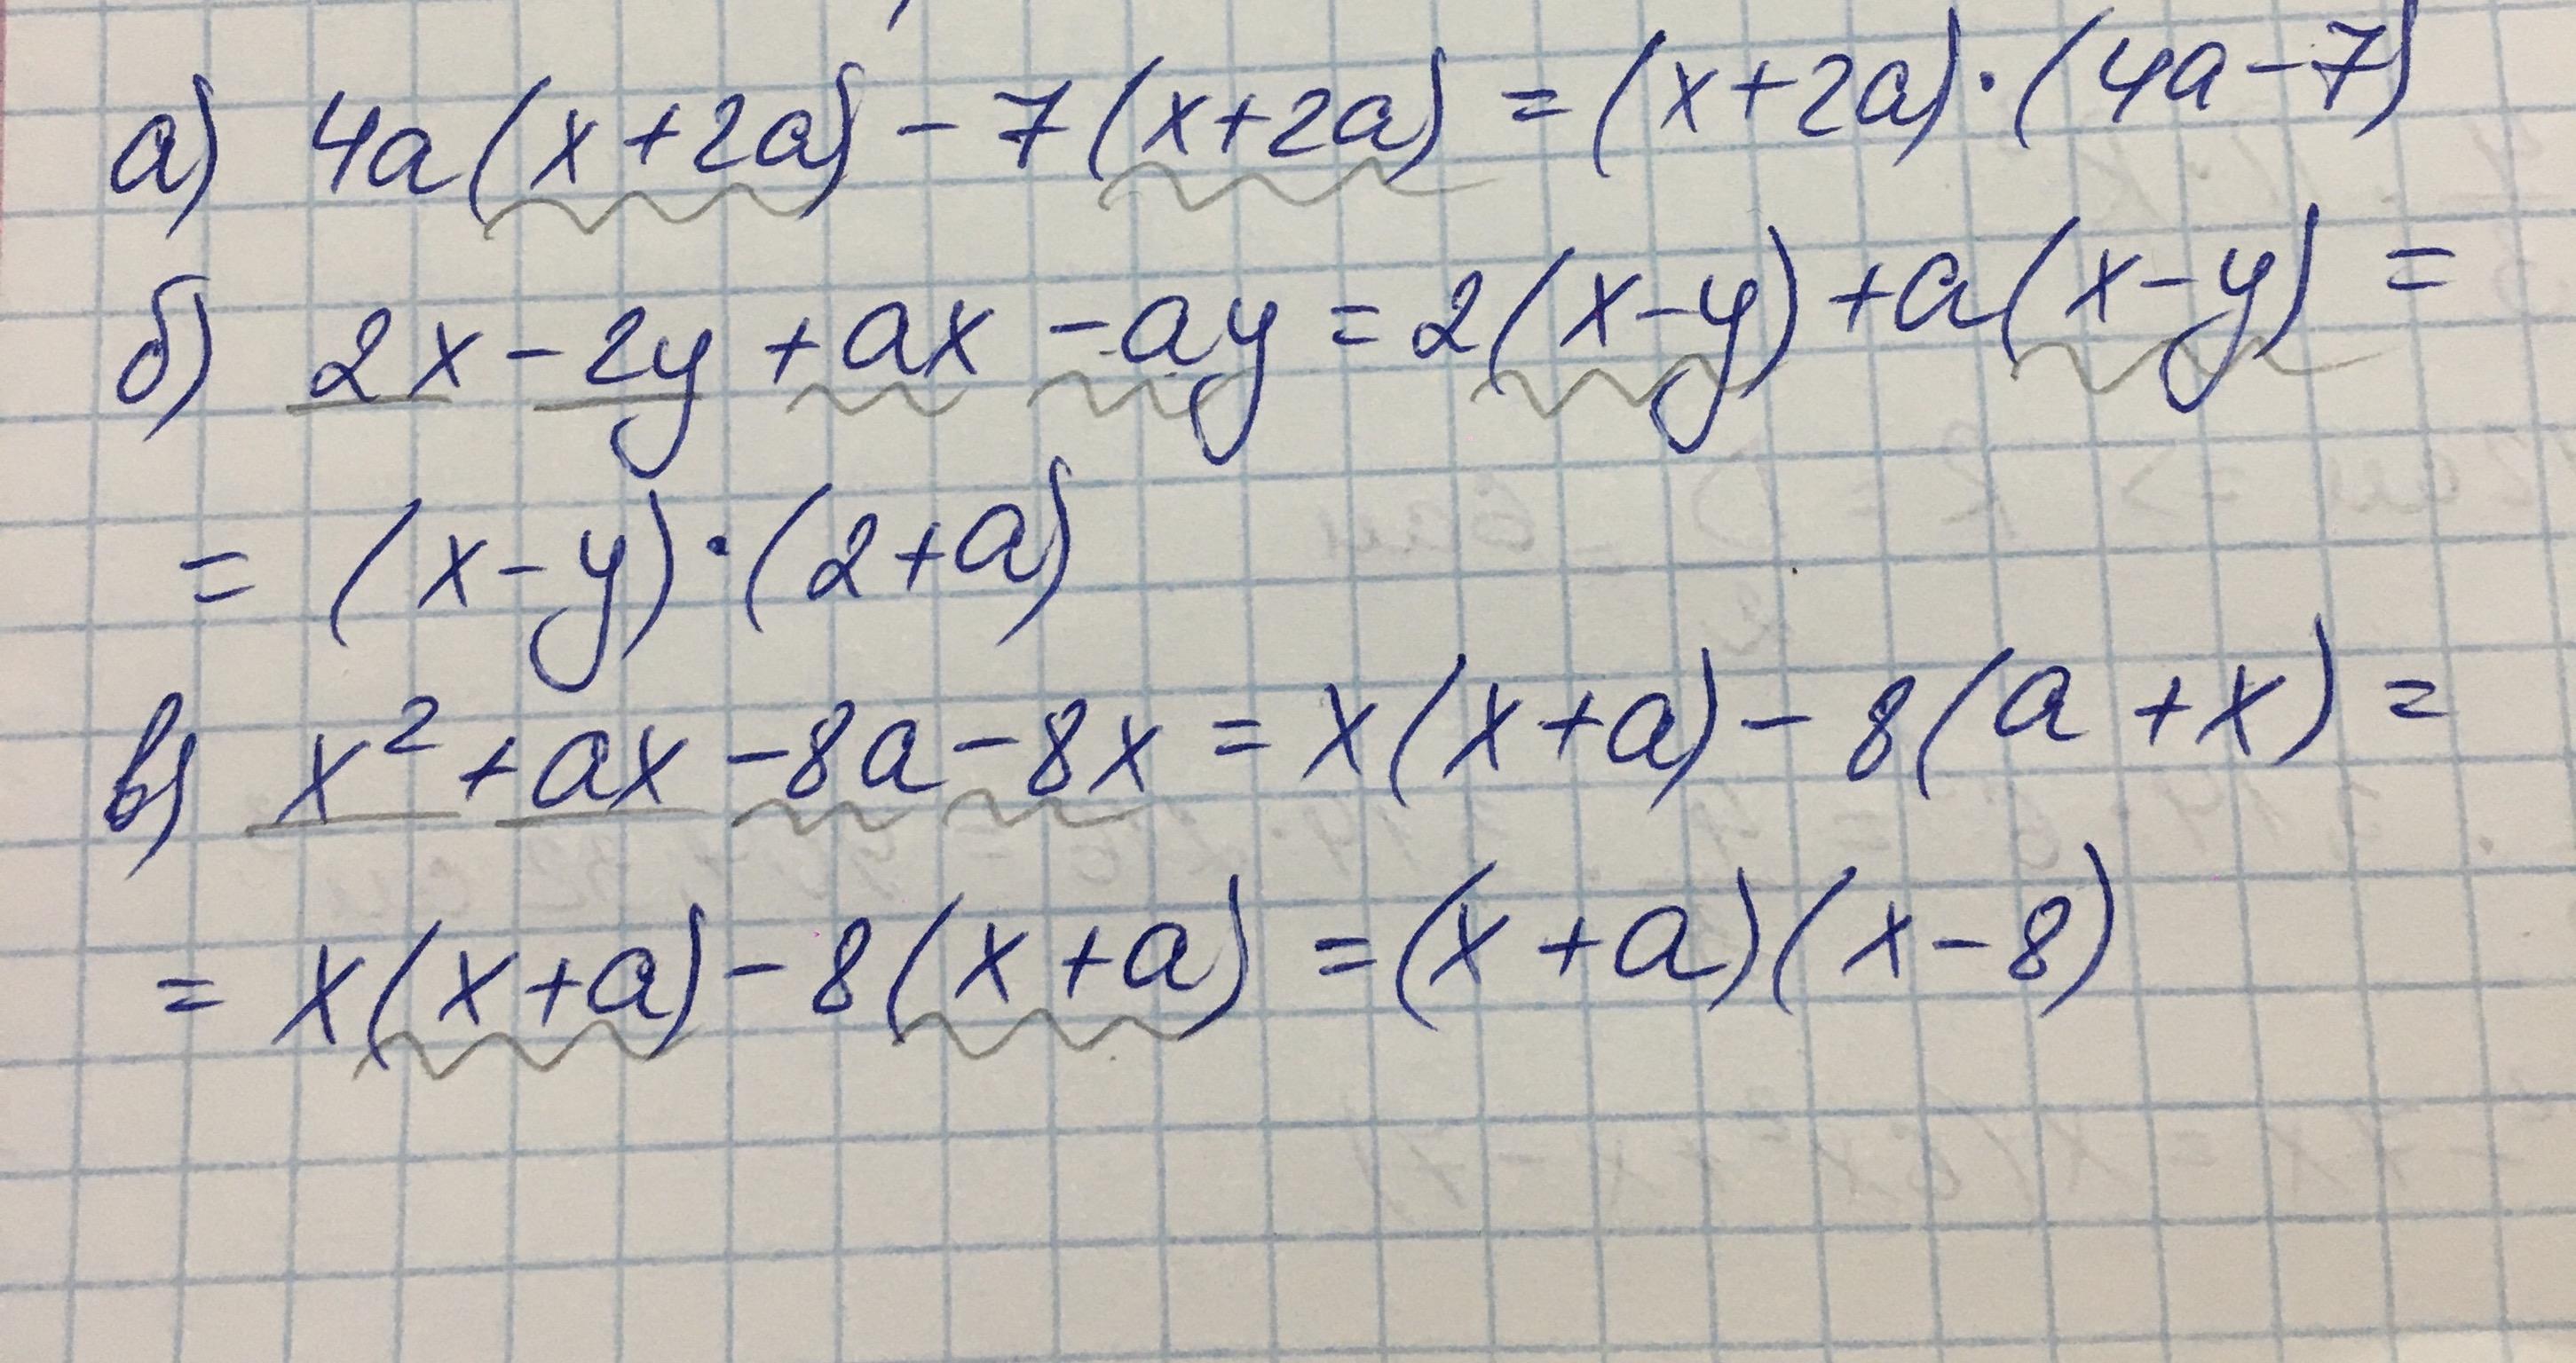 а) 4a(x+2a) - 7(x+2a) = (x+2a)·(4a-7)
б) 2x - 2y + ax - ay = 2(x-y) + a(x-y) =
= (x-y)·(2+a)
в) x² + ax - 8a - 8x = x(x+a) - 8(a+x) =
= x(x+a) - 8(x+a) = (x+a)(x-8)